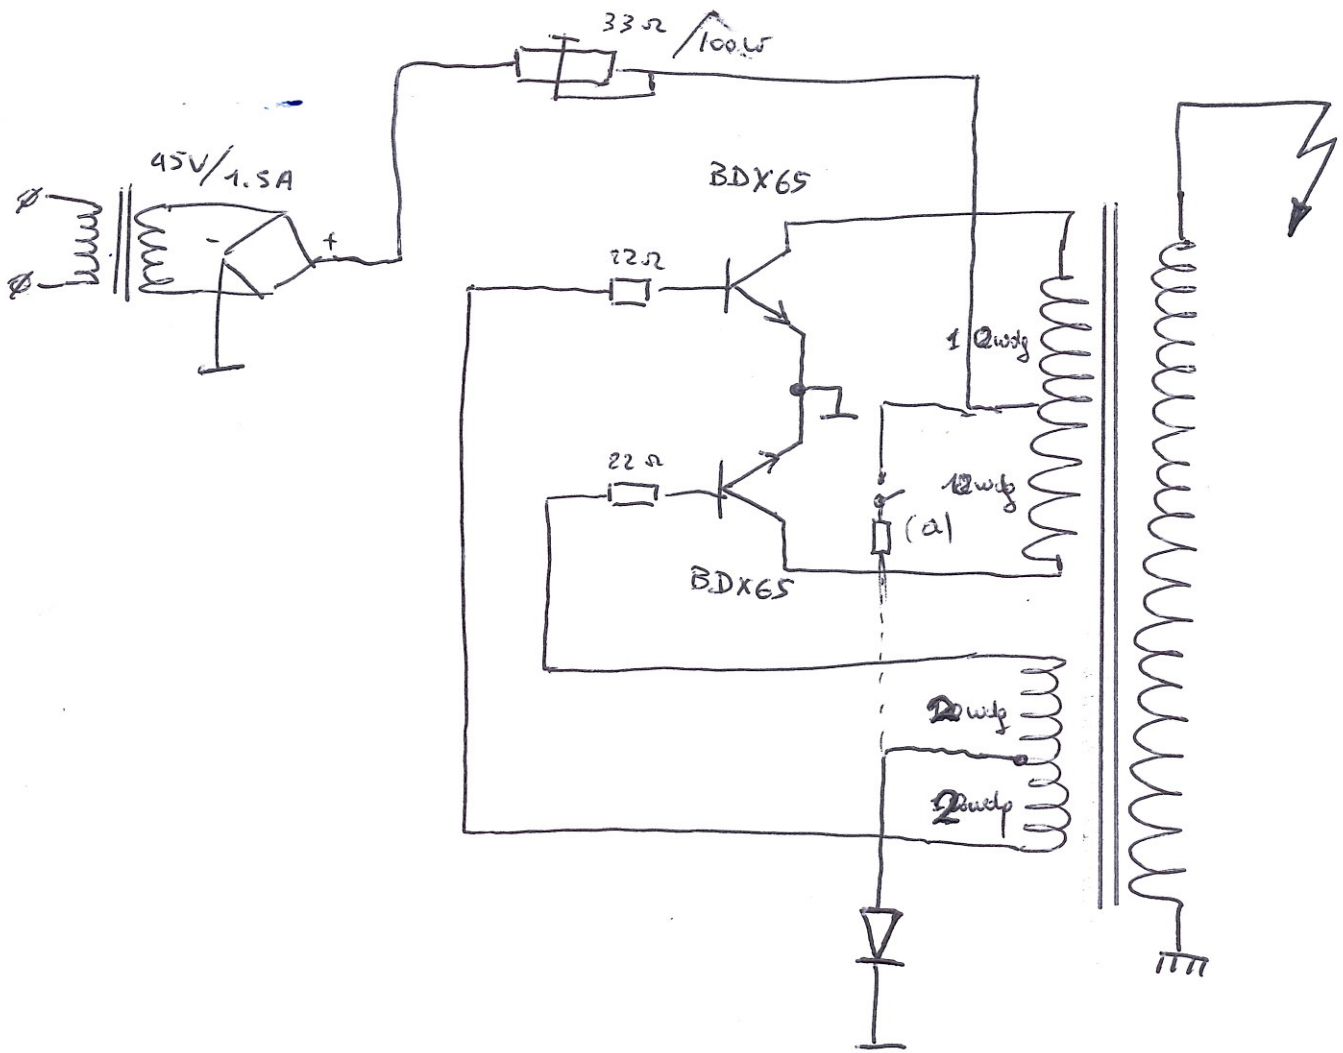 33Ω /100W
45V/1.5A
- +
BDX65
22Ω
22Ω
12wdg
12wdg
(a)
BDX65
2wdg
2wdg